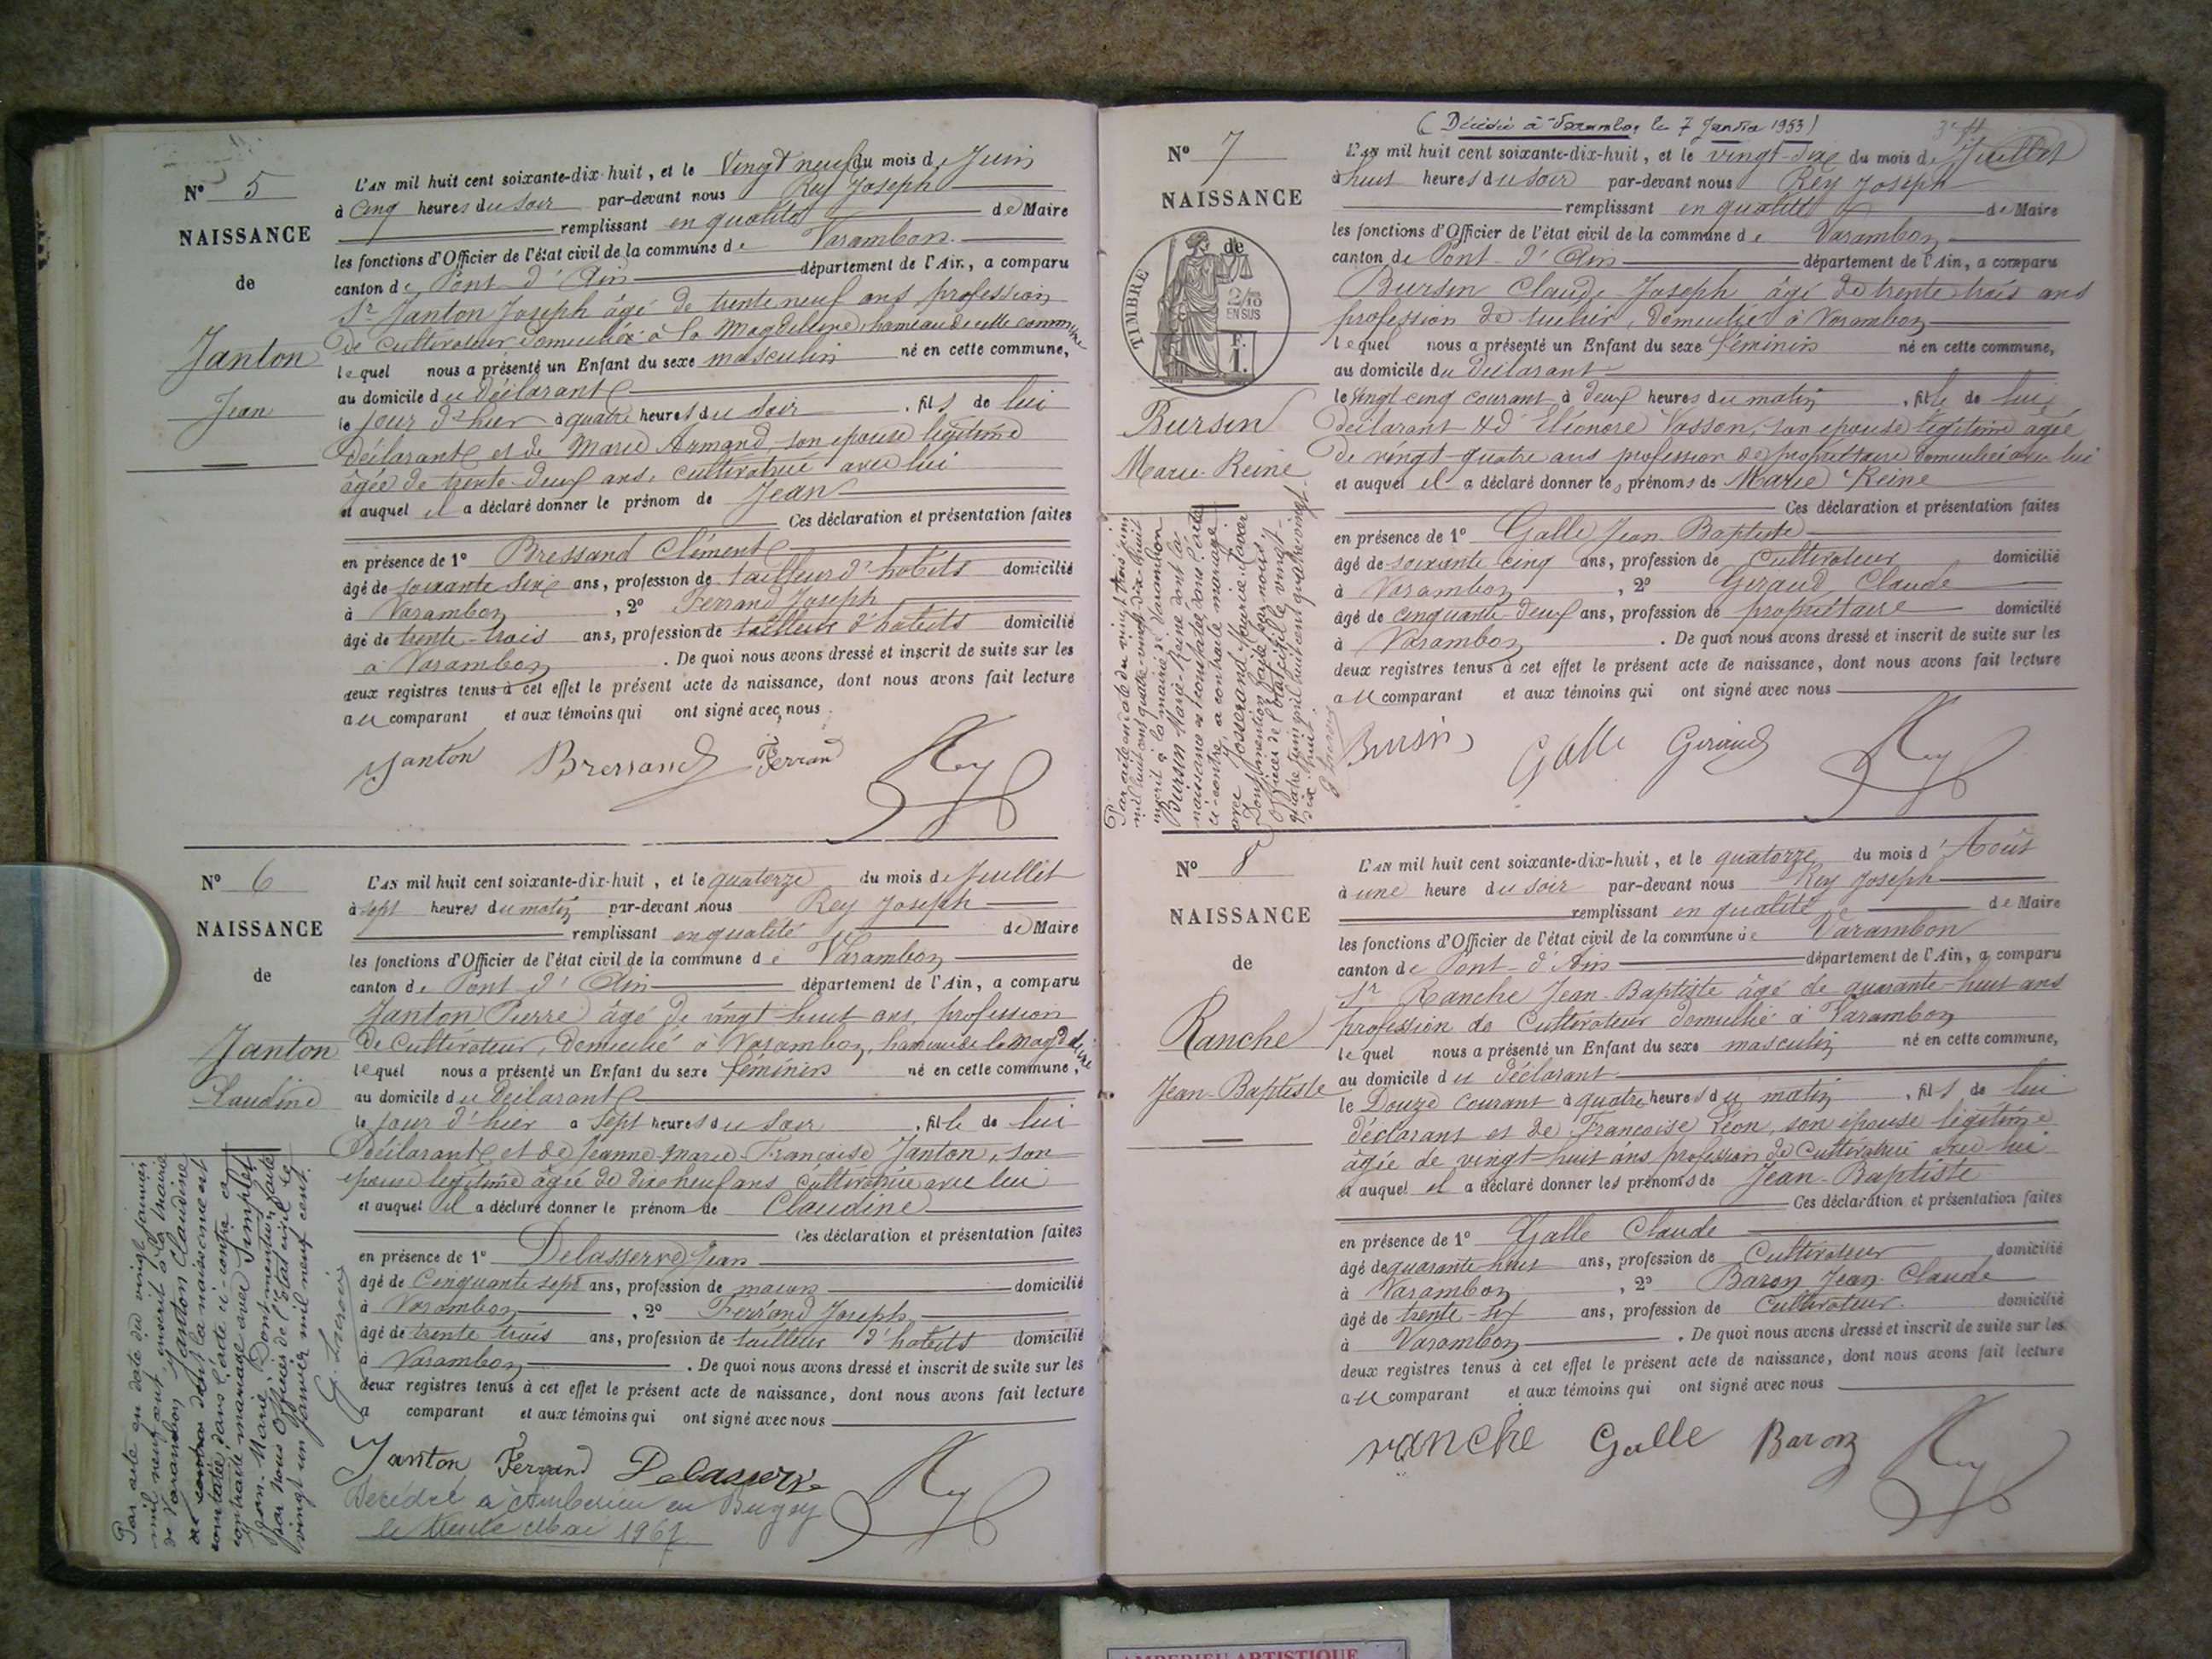 N° 5
NAISSANCE
de
Janton
Jean
L'AN mil huit cent soixante-dix-huit, et le Vingt neuf du mois de Juin
à Cinq heures du soir par-devant nous Rey Joseph
remplissant en qualité de Maire
les fonctions d'Officier de l'état civil de la commune de Varambon
canton de Pont d'Ain département de l'Ain, a comparu
Sr Janton Joseph âgé de trente neuf ans profession
de cultivateur domicilié à la Magdeleine, hameau de cette commune
lequel nous a présenté un Enfant du sexe masculin né en cette commune,
au domicile du déclarant
le jour d'hier à quatre heures du soir, fils de lui
déclarant et de Marie Armand, son épouse légitime
âgée de trente-deux ans, cultivatrice avec lui
et auquel il a déclaré donner le prénom de Jean
Ces déclaration et présentation faites
en présence de 1° Bressand Clément
âgé de soixante six ans, profession de tailleur d'habits domicilié
à Varambon, 2° Ferrand Joseph
âgé de trente-trois ans, profession de tailleur d'habits domicilié
à Varambon. De quoi nous avons dressé et inscrit de suite sur les
deux registres tenus à cet effet le présent acte de naissance, dont nous avons fait lecture
au comparant et aux témoins qui ont signé avec nous
Janton Bressand Ferrand Rey
N° 6
NAISSANCE
de
Janton
Claudine
L'AN mil huit cent soixante-dix-huit, et le quatorze du mois de Juillet
à sept heures du matin par-devant nous Rey Joseph
remplissant en qualité de Maire
les fonctions d'Officier de l'état civil de la commune de Varambon
canton de Pont d'Ain département de l'Ain, a comparu
Janton Pierre âgé de vingt huit ans, profession
de Cultivateur, domicilié à Varambon, hameau de la Magdeleine
lequel nous a présenté un Enfant du sexe féminin né en cette commune,
au domicile du déclarant
le jour d'hier à sept heures du soir, fille de lui
déclarant et de Jeanne-Marie-Françoise Janton, son
épouse légitime âgée de dix neuf ans cultivatrice avec lui
et auquel il a déclaré donner le prénom de Claudine
Ces déclaration et présentation faites
en présence de 1° Delasserve Jean
âgé de Cinquante sept ans, profession de maçon domicilié
à Varambon, 2° Ferrand Joseph
âgé de trente trois ans, profession de tailleur d'habits domicilié
à Varambon. De quoi nous avons dressé et inscrit de suite sur les
deux registres tenus à cet effet le présent acte de naissance, dont nous avons fait lecture
a comparant et aux témoins qui ont signé avec nous
Janton Ferrand Delasserve Rey
Décédée à Ambérieu en Bugey
le trente Mai 1967
Par acte en date du vingt janvier
mil neuf cent, inscrit à la mairie
de Varambon, Janton Claudine
dont la naissance est
constatée dans l'acte ci-contre a
contracté mariage avec
Jean-Marie. Dont mention faite
par nous Officier de l'état civil le
vingt un janvier mil neuf cent.
(Décédée à Varambon le 7 Janvier 1953)
N° 7
NAISSANCE
de
TIMBRE
2/10
EN SUS
F.
1.
Bursin
Marie-Reine
L'AN mil huit cent soixante-dix-huit, et le vingt-six du mois de Juillet
à huit heures du soir par-devant nous Rey Joseph
remplissant en qualité de Maire
les fonctions d'Officier de l'état civil de la commune de Varambon
canton de Pont-d'Ain département de l'Ain, a comparu
Bursin Claude Joseph âgé de trente trois ans
profession de tuilier, domicilié à Varambon
lequel nous a présenté un Enfant du sexe féminin né en cette commune,
au domicile du déclarant
le Vingt-cinq courant à deux heures du matin, fille de lui
déclarant & d'Eléonore Vasson, son épouse légitime âgée
de vingt-quatre ans profession de propriétaire domiciliée avec lui
et auquel il a déclaré donner les prénoms de Marie Reine
Ces déclaration et présentation faites
en présence de 1° Galle Jean Baptiste
âgé de soixante cinq ans, profession de cultivateur domicilié
à Varambon, 2° Giraud Claude
âgé de cinquante-deux ans, profession de propriétaire domicilié
à Varambon. De quoi nous avons dressé et inscrit de suite sur les
deux registres tenus à cet effet le présent acte de naissance, dont nous avons fait lecture
au comparant et aux témoins qui ont signé avec nous
Bursin Galle Giraud Rey
Par acte en date du vingt trois juin
mil huit cent quatre-vingt-dix-huit
inscrit à la mairie de Varambon
Bursin Marie-Reine dont la
naissance est constatée dans l'acte
ci-contre, a contracté mariage
avec Josserand
Dont mention faite par nous
Officier de l'état civil le vingt-
quatre juin mil huit cent quatre vingt-
dix huit.
N° 8
NAISSANCE
de
Ranche
Jean-Baptiste
L'AN mil huit cent soixante-dix-huit, et le quatorze du mois d'Août
à une heure du soir par-devant nous Rey Joseph
remplissant en qualité de Maire
les fonctions d'Officier de l'état civil de la commune de Varambon
canton de Pont-d'Ain département de l'Ain, a comparu
Sr Ranche Jean-Baptiste âgé de quarante-huit ans
profession de Cultivateur domicilié à Varambon
lequel nous a présenté un Enfant du sexe masculin né en cette commune,
au domicile du déclarant
le Douze courant à quatre heures du matin, fils de lui
déclarant et de Françoise Léon, son épouse légitime
âgée de vingt-huit ans profession de Cultivatrice avec lui
et auquel il a déclaré donner les prénoms de Jean-Baptiste
Ces déclaration et présentation faites
en présence de 1° Galle Claude
âgé de quarante huit ans, profession de Cultivateur domicilié
à Varambon, 2° Baron Jean Claude
âgé de trente-six ans, profession de Cultivateur domicilié
à Varambon. De quoi nous avons dressé et inscrit de suite sur les
deux registres tenus à cet effet le présent acte de naissance, dont nous avons fait lecture
au comparant et aux témoins qui ont signé avec nous
ranche Galle Baron Rey
AMBERIEU ARTISTIQUE